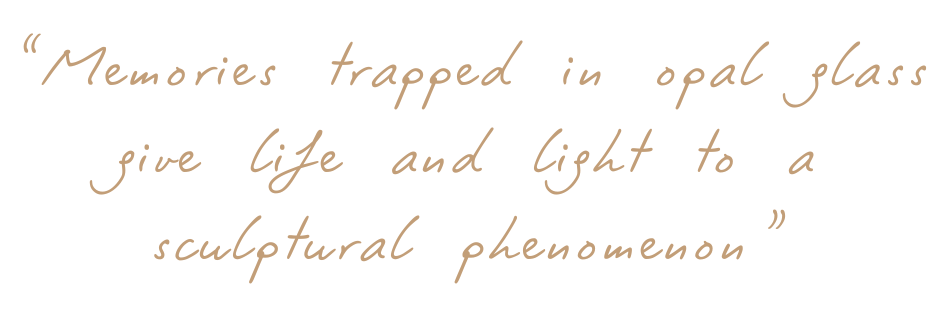 “Memories trapped in opal glass
give life and light to a
sculptural phenomenon”